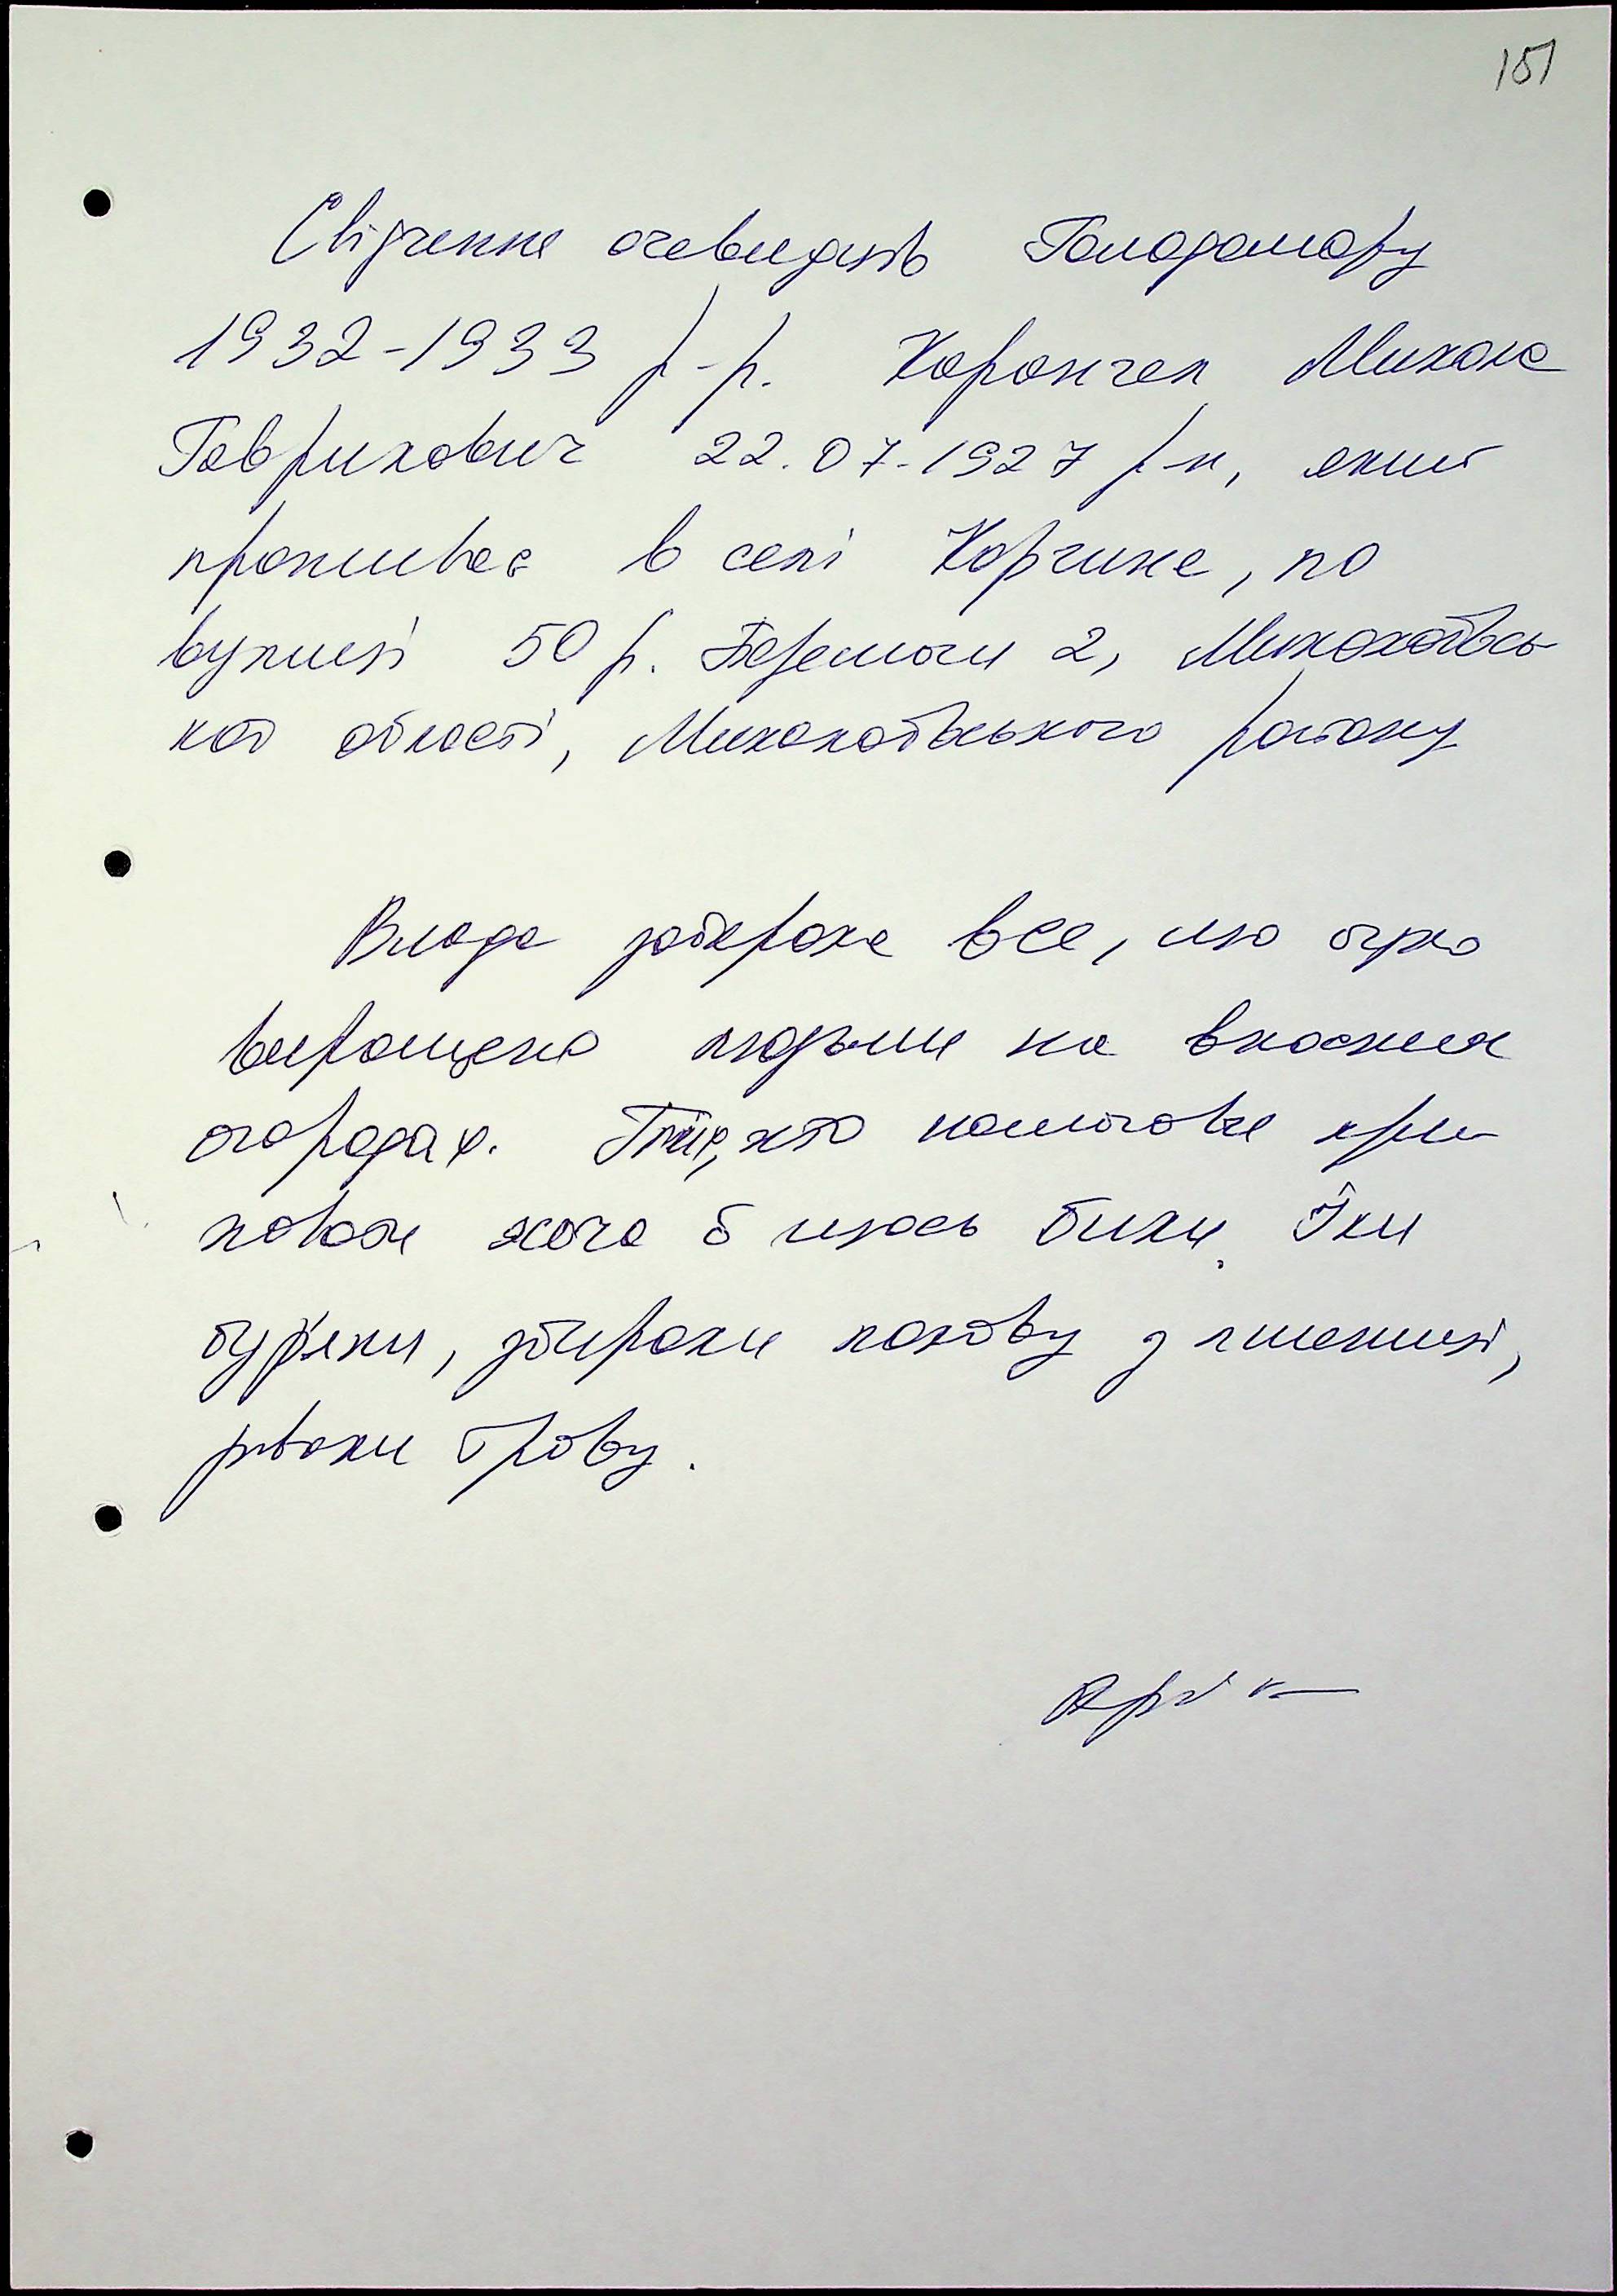 151
Свідчення очевидців Голодомору
1932-1933 р-р. Миколи
Гаврилович 22.07-1927 р-н, який
проживає в селі Корчине, по
вулиці 50 р. Перемоги 2, Миколаївсь
кої області, Миколаївського району
Влада забирала все, що було
вирощено людьми на власних
огородах. Тих, хто намагався при
ховати хоча б щось били. Їли
бур'яни, збирали полову з пшениці,
рвали траву.